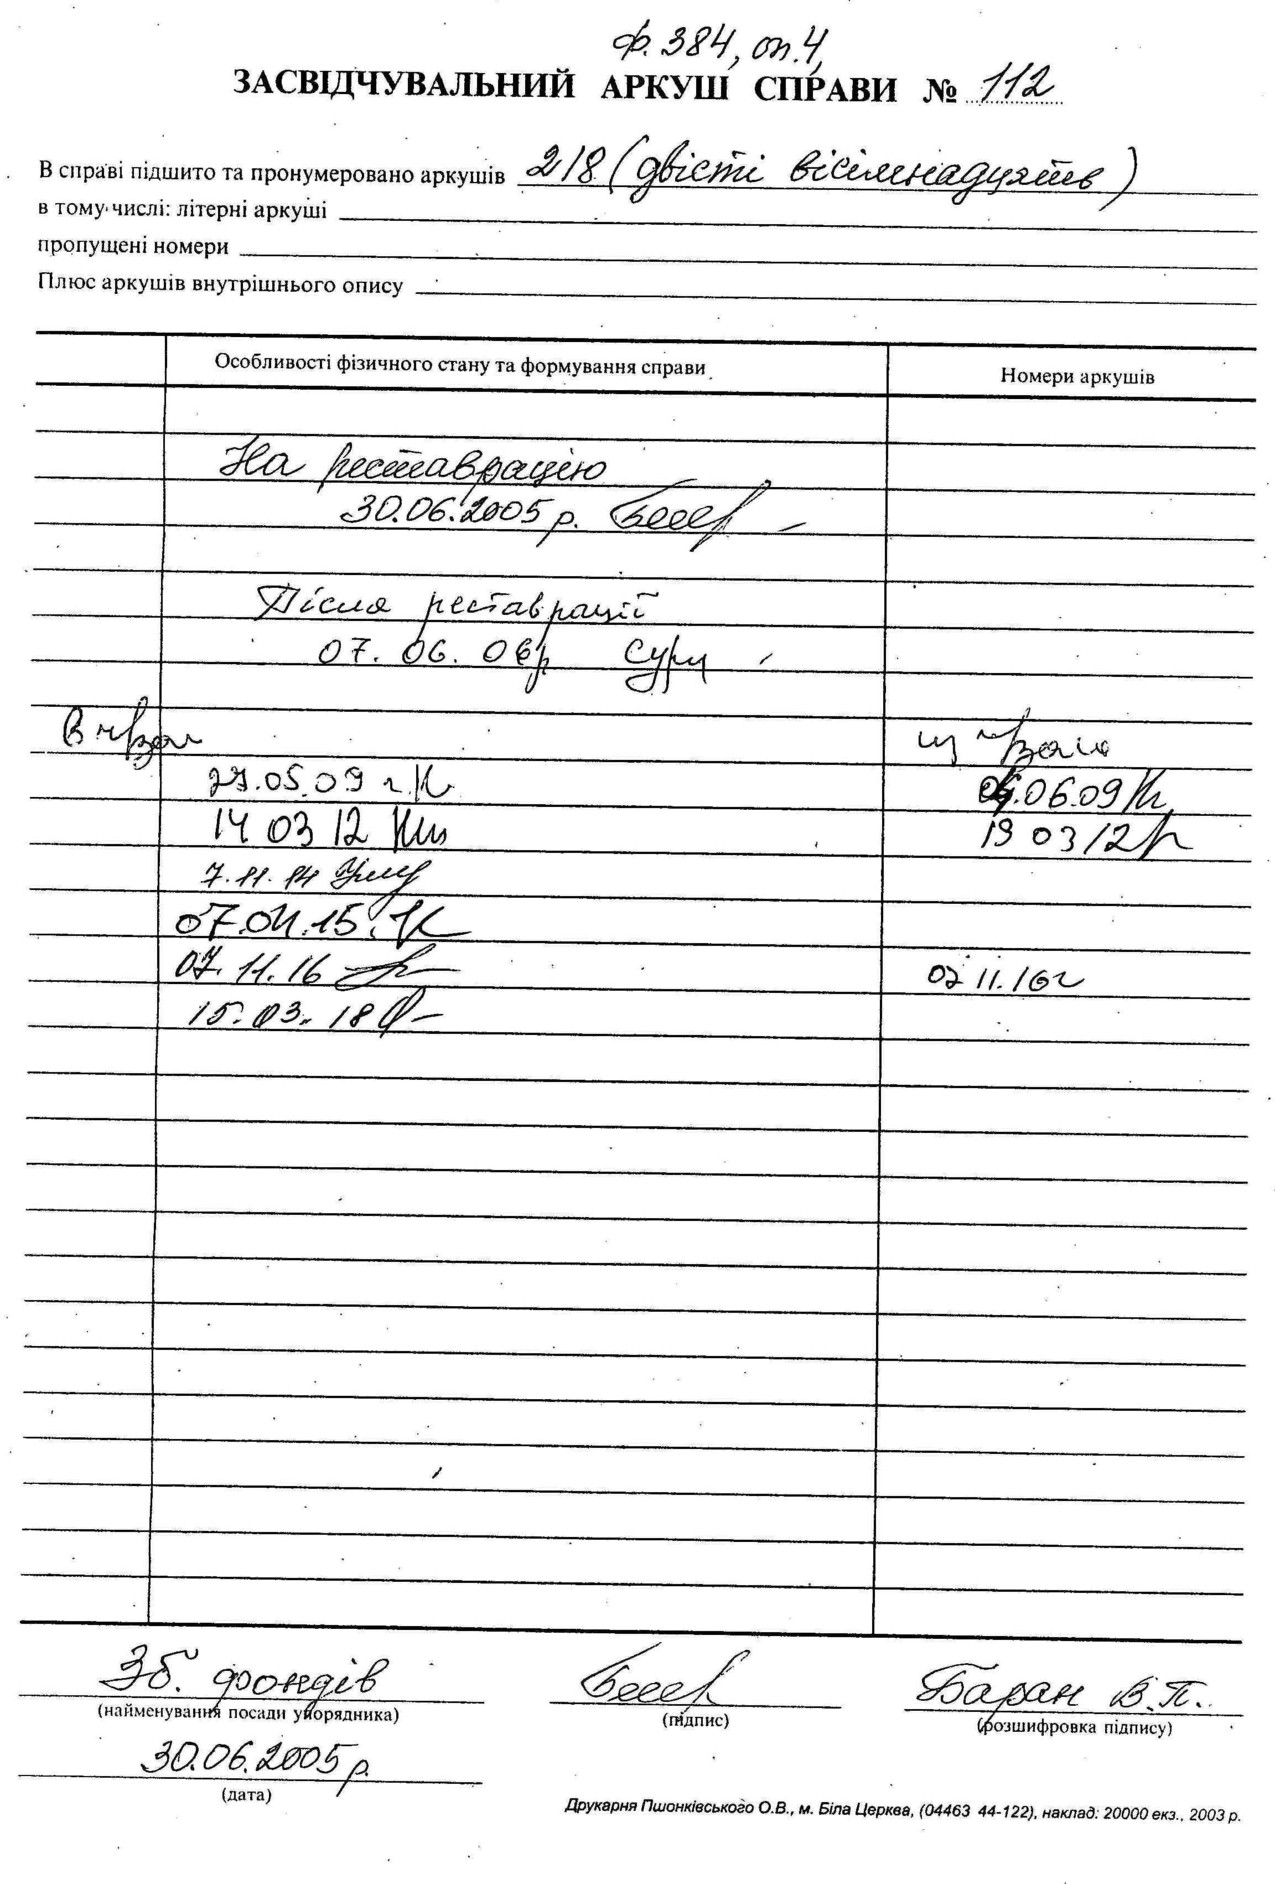 ф. 384, оп. 4,
ЗАСВІДЧУВАЛЬНИЙ АРКУШ СПРАВИ № 112
В справі підшито та пронумеровано аркушів 218 (двісті вісімнадцять)
в тому числі: літерні аркуші
пропущені номери
Плюс аркушів внутрішнього опису
Особливості фізичного стану та формування справи Номери аркушів
На реставрацію
30.06.2005 р.
Після реставрації
07. 06. 06р
В ч/зал из ч/зала
27.05.09 г. .06.09
14 03 12 19 03 12
7.11.14
07.04.15.
07.11.16 07 11.16г
15.03.18
Зб. фондів Баран В.П.
(найменування посади упорядника) (підпис) (розшифровка підпису)
30.06.2005 р.
(дата)
Друкарня Пшонківського О.В., м. Біла Церква, (04463 44-122), наклад: 20000 екз., 2003 р.